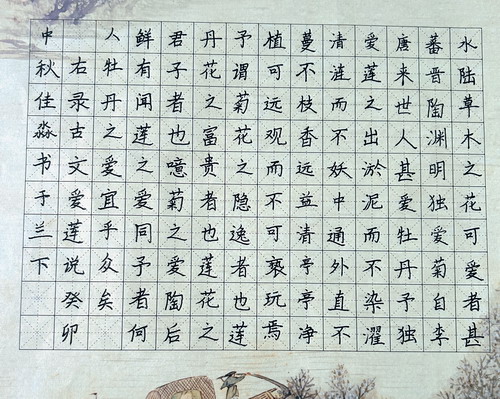 水陆草木之花可爱者甚
蕃晋陶渊明独爱菊自李
唐来世人甚爱牡丹予独
爱莲之出淤泥而不染濯
清涟而不妖中通外直不
蔓不枝香远益清亭亭净
植可远观而不可亵玩焉
予谓菊花之隐逸者也莲
丹花之富贵者也莲花之
君子者也噫菊之爱陶后
鲜有闻莲之爱同予者何
人牡丹之爱宜乎众矣
右录古文爱莲说癸卯
中秋佳淼书于兰下